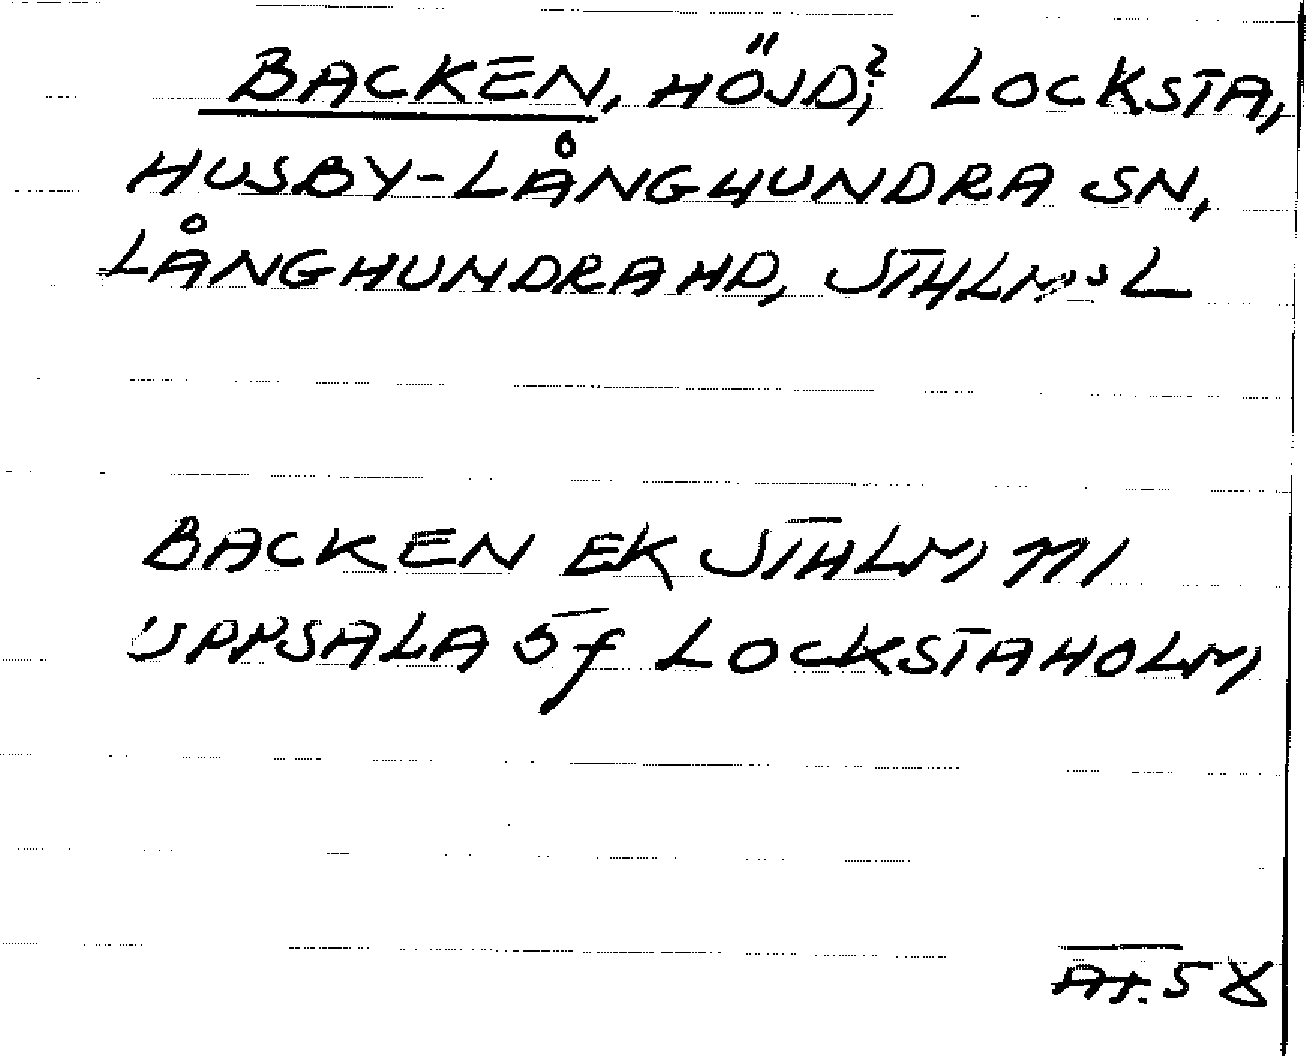 BACKEN, HÖJD?; LOCKSTA,
HUSBY-LÅNGHUNDRA SN,
LÅNGHUNDRA HD, STHLMS L
BACKEN EK STHLM 111
UPPSALA 5f LOCKSTAHOLM